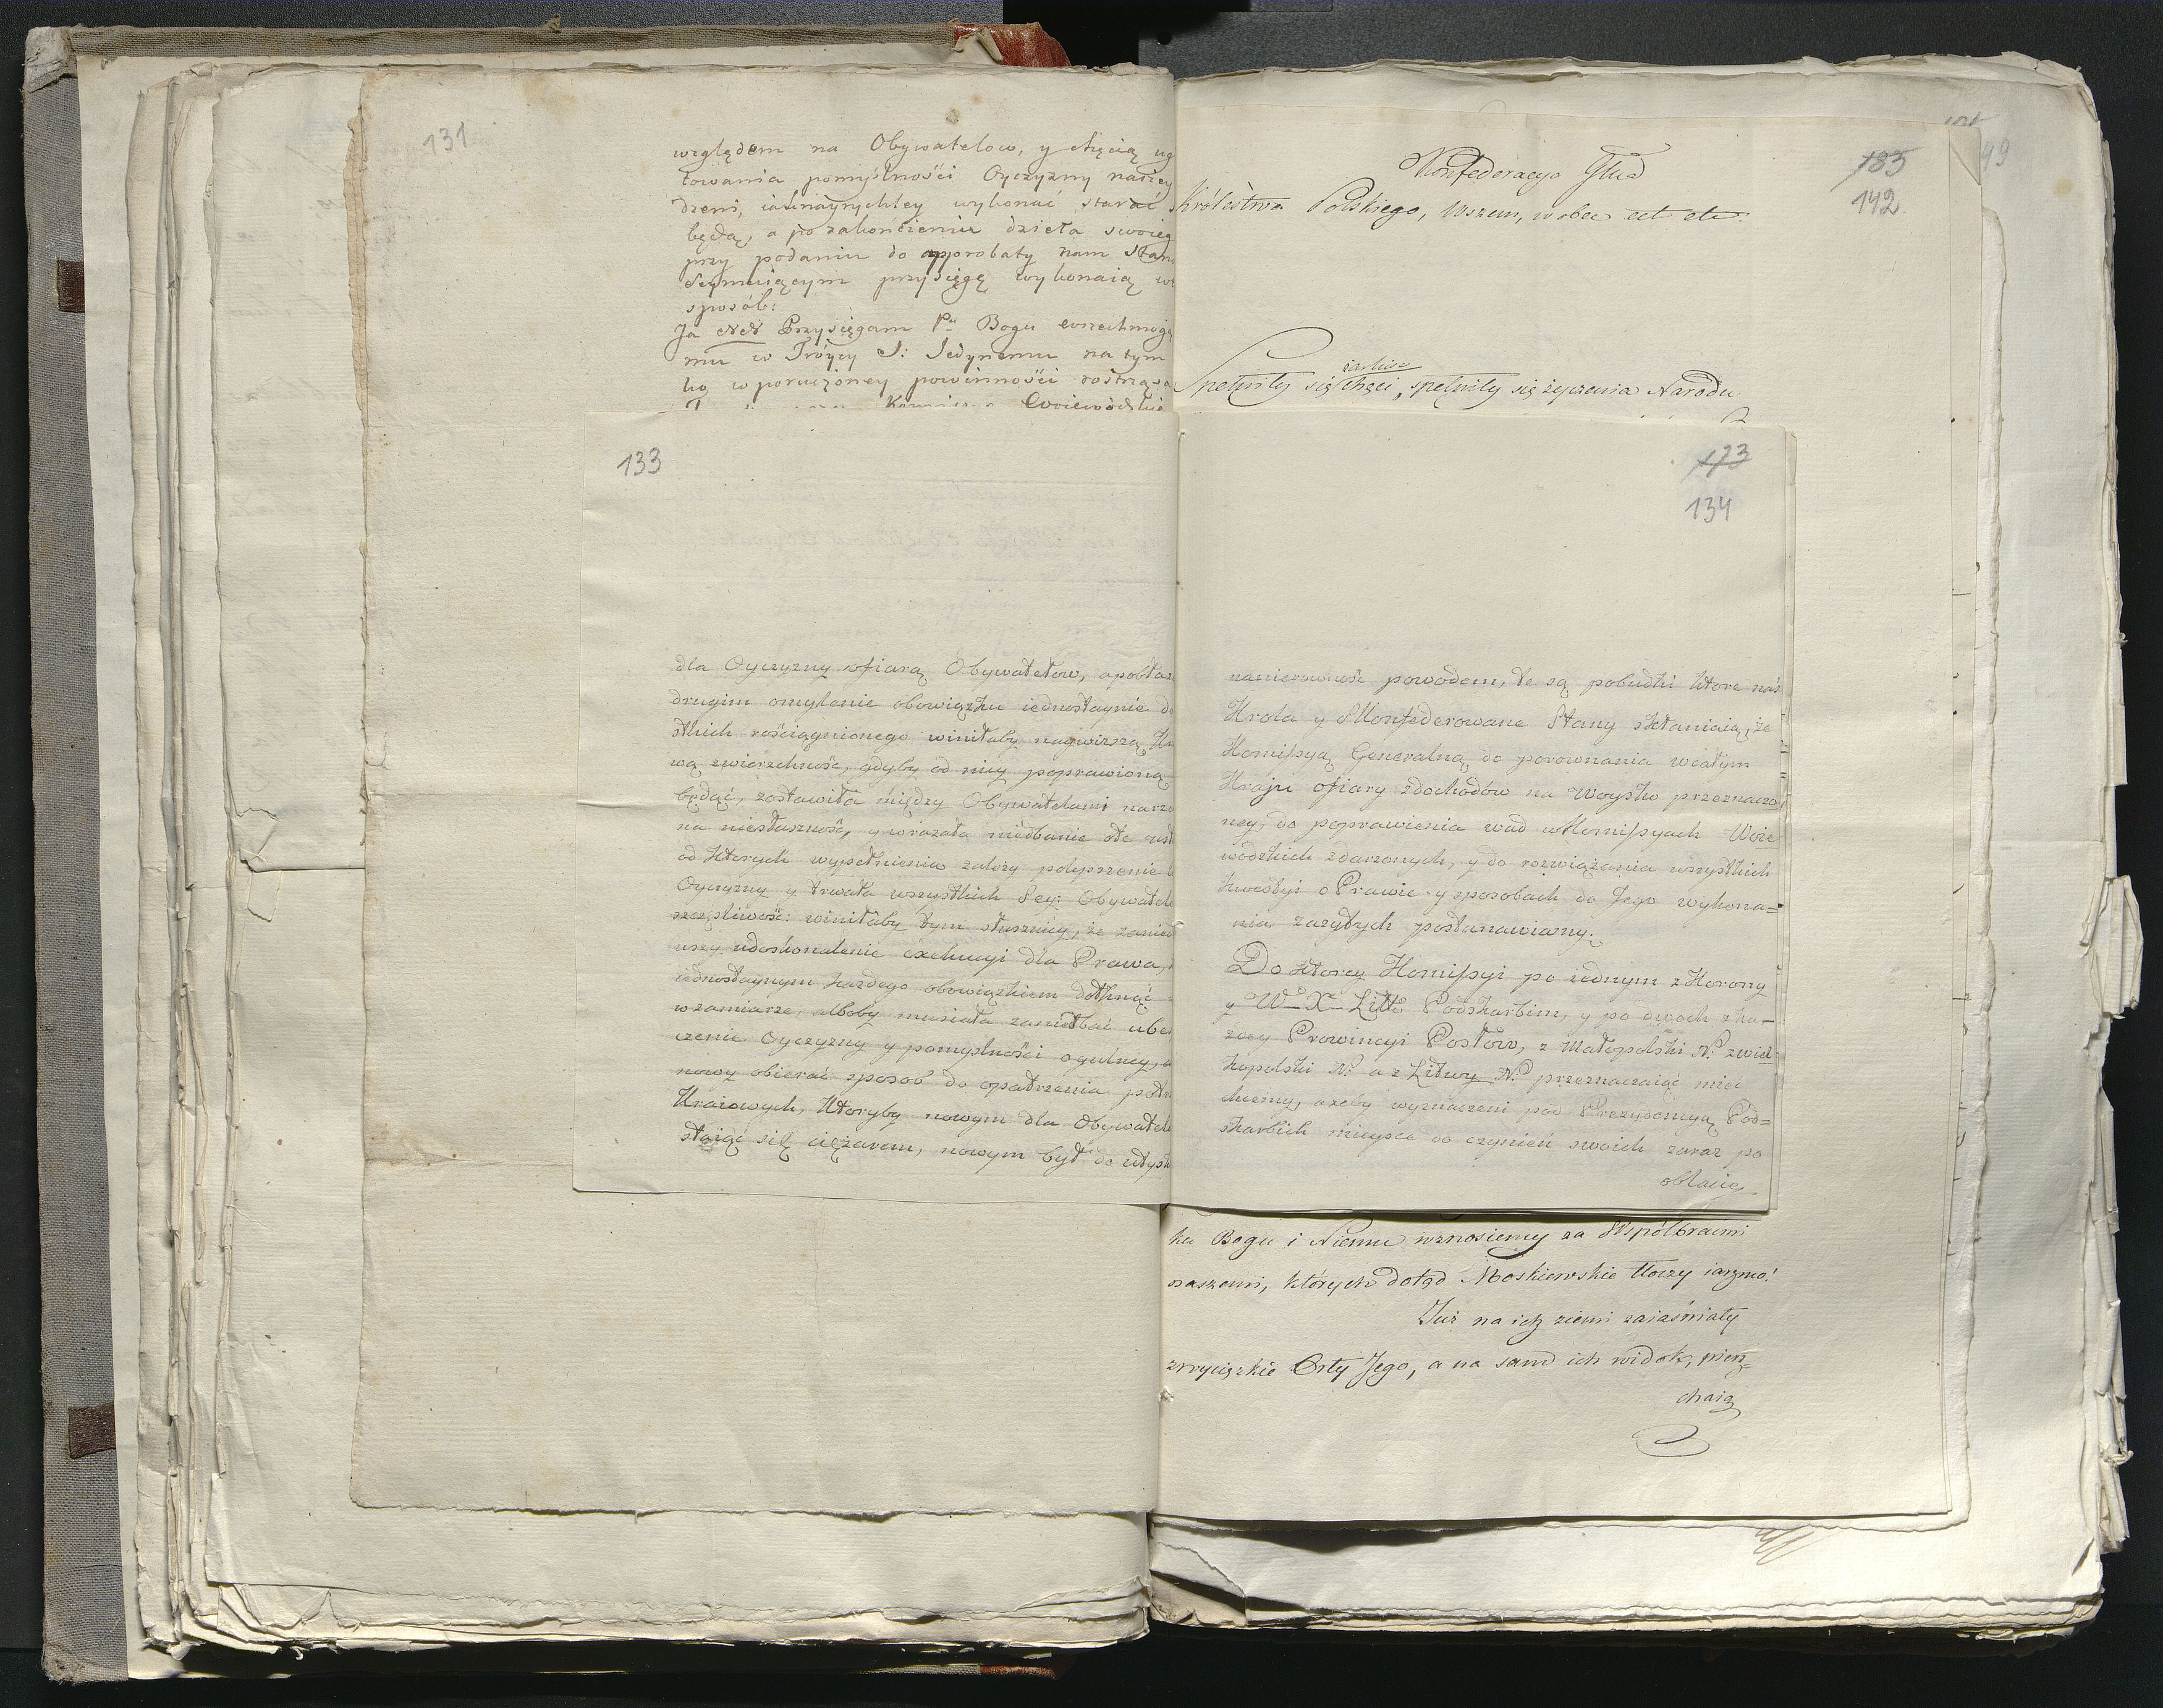 131
względem na Obywatelow, y chęcią ug
towania pomyślności Oyczyzny naszey
dzeni, iaknayrychley wykonać starać s
będą, a po zakończeniu dzieła swoieg
przy podaniu do approbaty nam Stan
Seymuiącym przysięgę wykonaią w
sposób:
Ja NN Przysięgam Pu Bogu wszechmogą
mu w Tróycy S: Jedynemu na tym
ko w poruczoney powinności roztrząsa
133
dla Oyczyzny ofiarą Obywatelow, a pobłaż
drugim omylenie obowiązku iednostaynie do
stkich rościągnionego winiłaby naywiższą Kr
wą zwierzchność, gdyby od niey poprawioną
będąc, zostawiła między Obywatelami narze
na niesłuszność, y wrażała niedbanie
od których wypełnienia zależy polepszenie
Oyczyzny y trwała wszystkich Jey: Obywatel
szczęśliwość: winiłaby tym słuszniey, że zanied
wszy udoskonalenie exekucyi dla Prawa,
iednostaynym każdego obowiązkiem dotknąć
w zamiarze, alboby musiała zaniedbać ube
czenie Oyczyzny y pomyślności ogulney, a
nowy obierać sposob do opatrzenia potr
Kraiowych, Ktoryby nowym dla Obywatel
staiąc się ciężarem, nowym był do utysk
49
185
142
Konfederacya Głna
Królestwa Polskiego, Wszem, wobec ect etc.
żarliwe
Spełniły się chęci, spełniły się życzenia Narodu
173
134
nanierowność powodem, te są pobudki Ktore nas
Krola y Skonfederowane Stany skłaniaią, że
Komissyą Generalną do porownania wcałym
Kraju ofiary zdochodów na Woysko przeznaczo
ney, do poprawienia wad w Komissyach Woie
wodzkich zdarzonych, y do rozwiązania wszystkich
kwestyi o Prawie y sposobach do Jego wykona=
nia zaszłych postanawiamy.
Do Ktorey Komissyi po iednym z Korony
y W° Xa Litto Podskarbim, y po dwoch zka=
zdey Prowincyi Posłow, z Małopolski N: zwiel=
kopolski N: a z Litwy N: przeznaczaiąc mieć
chcemy, azeby wyznaczeni pod Prezydencyą Pod=
skarbich mieysce do czynień swoich zaraz po
obłaiią
ku Bogu i Niemu wznosiemy za Współbraćmi
naszemi, których dotąd Moskiewskie tłoczy iarzmo!
Już na ich ziemi zaiaśniały
zwycięzkie Orły Jego, a na sam ich widok, pierz=
chaią